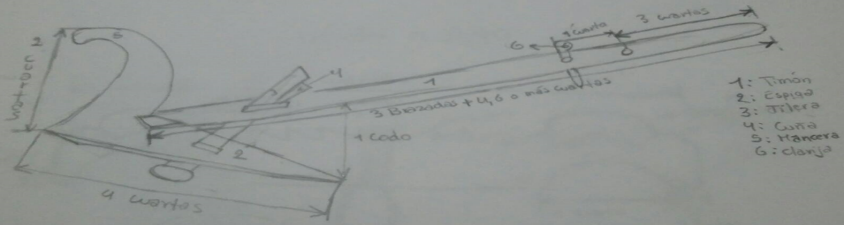 2
5
4
1
6
1 cuarta
3 cuartas
3 Brazadas + 4, 6 o más cuartas
1 codo
2
4 cuartas
1: Timón
2: Espiga
3: Telera
4: Cuña
5: Mancera
6: Clavija